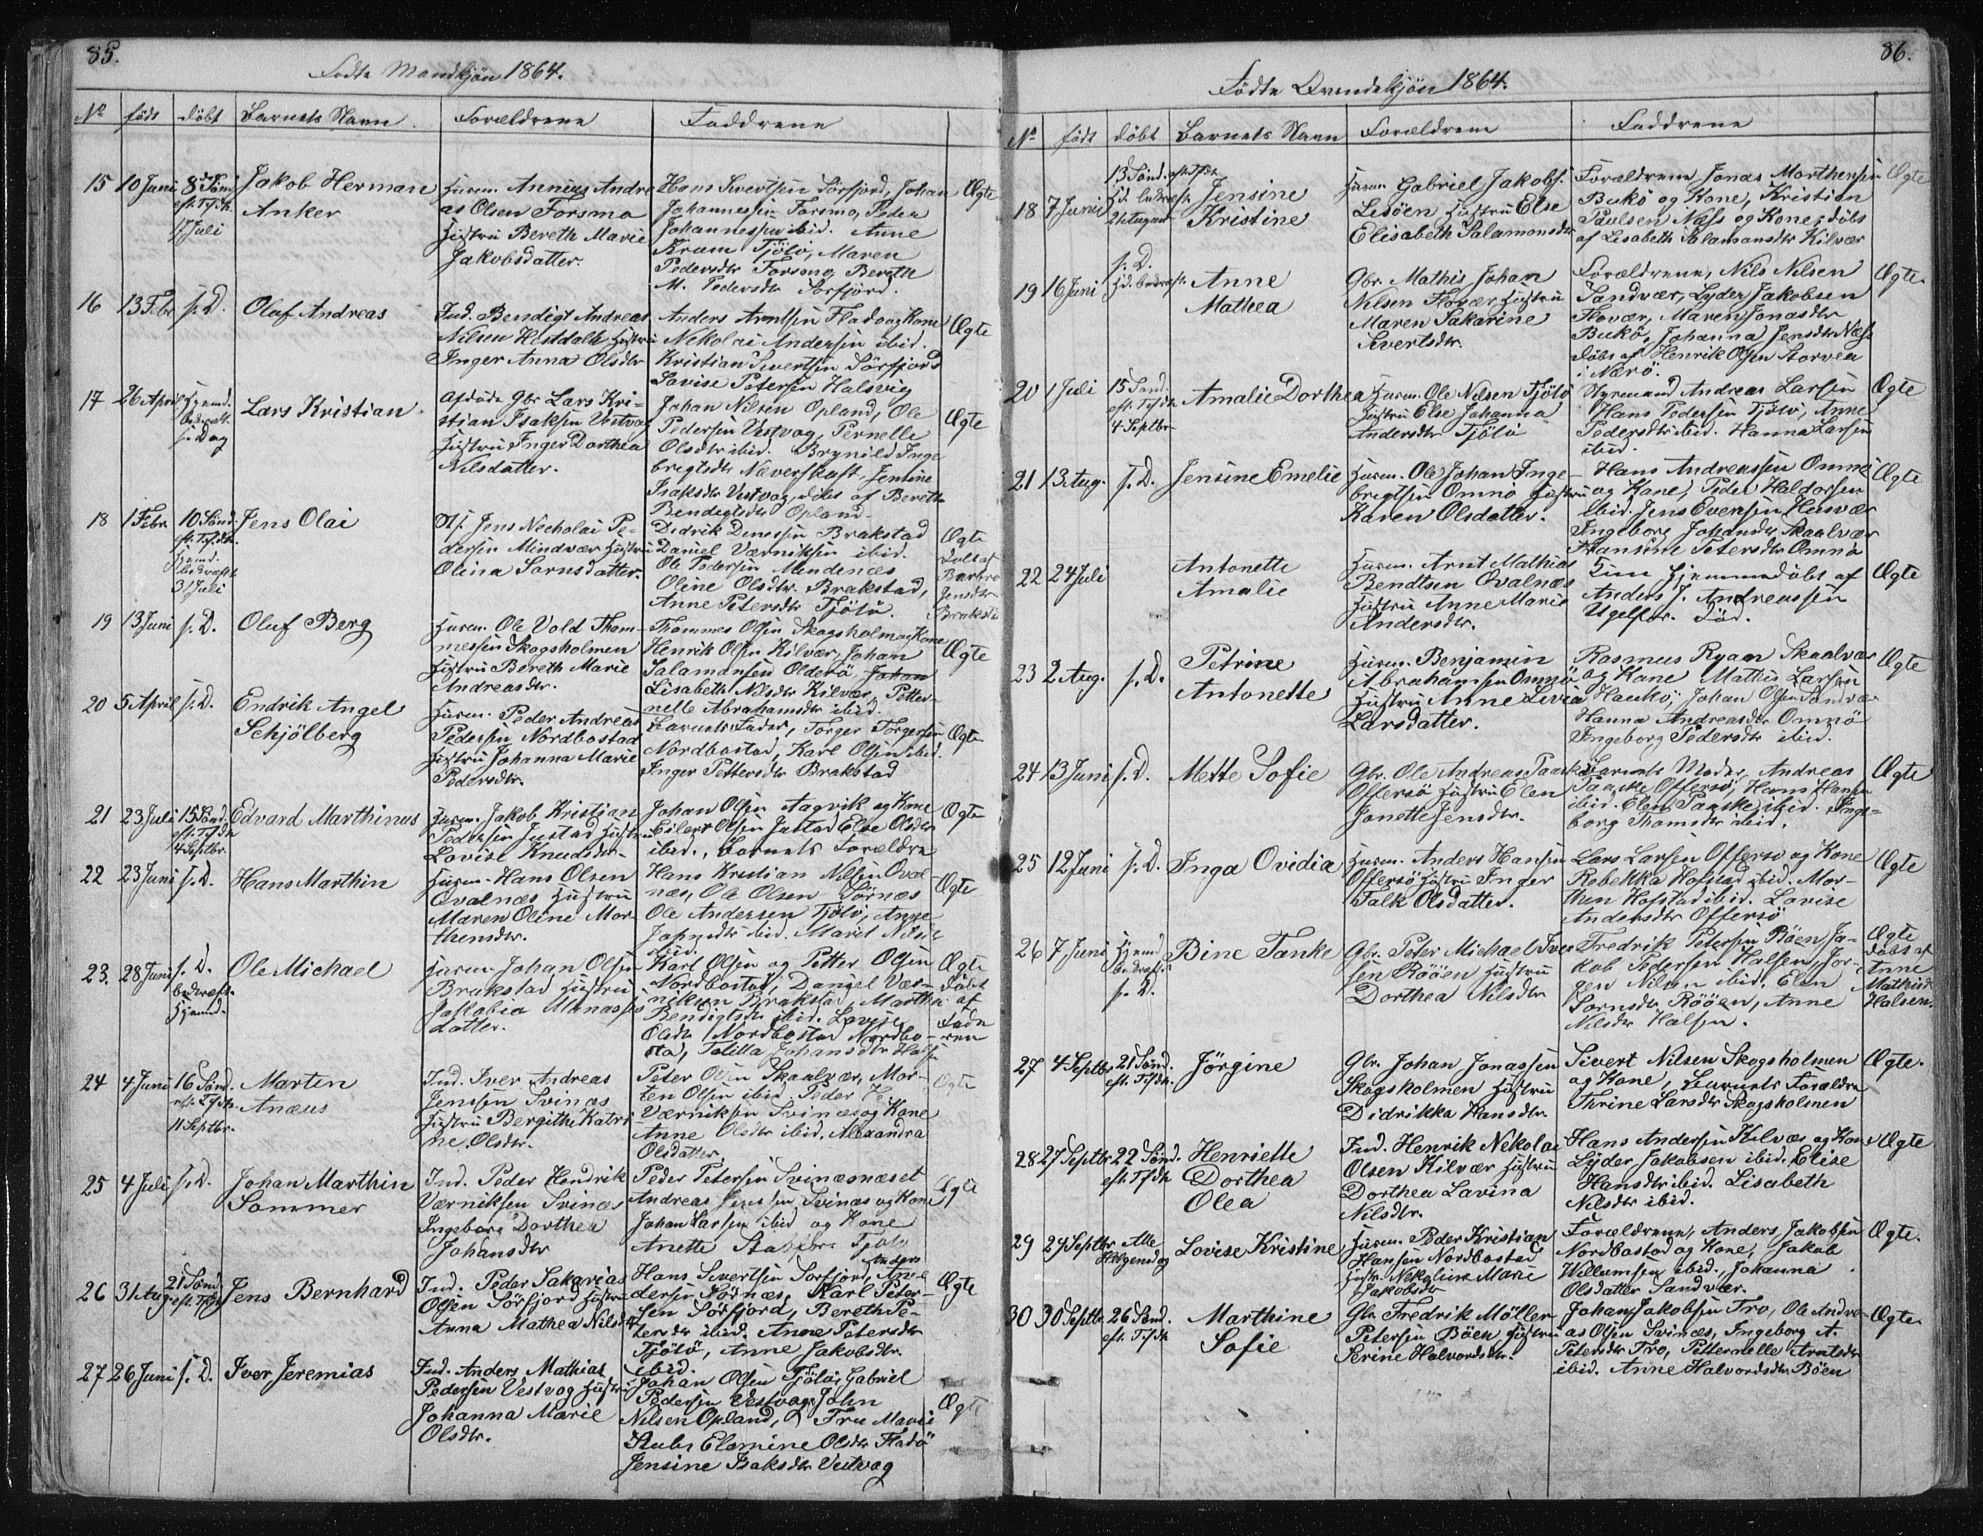 85.
Fødte Mandkjøn 1864.
No født døbt Barnets Navn Forældrene Faddrene
15 10 Juni 8de Sönd. eft. Trfdh. 17 Juli
Jakob Herman
Anker
Husm. Annæus Andre
as Olsen Forsmo
Hustru Bereth Marie
Jakobsdatter.
Hans Sivertsen Sörfjord, Johan
Johannessen Forsmo, Peder
Johannessen ibid. Anne
Tjötö, Maren
Pedersdtr Forsmo, Bereth
M. Pedersdtr Sorfjord.
Ægte
16 13 Febr s. D.
Olaf Andreas
Ind. Bendigt Andreas
Nilsen Hustru
Inger Anna Olsdtr
Anders Arntsen Fladvog Kone
Nekolai Andersen ibid.
Kristian Sivertsen Sörfjord
Lovise Petersen Halsvig
Ægte
17 26 April Hjemd. bekræft. s. Dag
Lars Kristian
Afdöde Gbr Lars Kri-
stian Isaksen Vestvog
Hustru Inger Dorthea
Nilsdatter.
Johan Nilsen Opland, Ole
Pedersen Vestvog, Pernelle
Olsdtr ibid. Brynild Inge
brigtsdtr Næverskaft, Jensine
Isaksdtr Vestvog, döbt af Bereth
Bendigtsdtr Opland.
Ægte
18 1 Febr 10 Sönd. eft. Trfdh. Hjemd. bekræft 31 Juli
Jens Olai
Jens Necholai Pe-
dersen Mindvær Hustru
Olina Sörnsdatter.
Didrik Brakstad
Daniel Værniksen ibid.
Ole Pedersen Mindenæs
Oline Olsdtr. Brakstad,
Anne Petersdtr Tjötö.
Ægte
Döbt af
Barbro
Jensdtr
Brakstd
19 13 Juni s. D.
Oluf Berg
Husm. Ole Vold Thom-
messen Skogsholmen
Hustru Bereth Marie
Andreasdtr.
Thommes Olsen Skogsholm og Kone
Henrik Olsen Kilvær, Johan
Salamonsen Olderö, Johan
Lisabeth Nilsdtr Kilvær, Petter-
nelle Abrahamsdtr ibid.
Ægte
20 5 April s. D.
Endrik Angel
Schjölberg
Husm. Peder Andreas
Pedersen Nordbostad
Hustru Johanna Marie
Pedersdtr.
Barnets Fader, Torger Torgersen
Nordbostad, Karl Olsen ibid.
Inger Pettersdtr Brakstad
Ægte
21 23 Juli 15 Sönd. eft. Trfdh 4 Septbr.
Edvard Marthinus
Husm. Jakob Kristian
Pedersen Justad Hustru
Lovise Knudsdtr.
Johan Olsen Aagvik og Kone
Eilert Olsen Justad Else Olsdtr
ibid., barnets Forældre
Ægte
22 23 Juni s. D.
Hans Marthin
Husm. Hans Olsen
Qvalnæs Hustru
Maren Oline Mor-
thensdtr.
Hans Kristian Nilsen Qval
næs, Ole Olsen Sörnæs
Ole Andersen Tjötö, Anne
ibid. Marit Nilse
ibid.
Ægte
23. 28 Juni s. D. bekræft. Hjemd.
Ole Michael
Husm. Johan Olsen
Brakstad Hustru
Jakobia Manasses
datter.
Karl Olsen og Petter Olsen
Nordbostad, Daniel Vær-
niksen Brakstad, Marthe
Bendigtsdtr ibid. Lovise
Olsdtr Nordbostad Nordbo-
stad, Johansdtr Hals
Ægte
döbt
af
Fade
ren
24 4 Juni 16 Sönd. eft. Trfdh. 11 Septbr.
Marten
Anæus
Ind. Iver Andreas
Jenssen Svinæs
Hustru Bergithe Katri
ne Olsdtr.
Peter Olsen Skaalvær, Mor-
ten Olsen ibid. Peder H
Værniksen Svinæs og Kone
Anne Olsdtr ibid. Alexandra
Olsdatter.
Ægte
25 4 Juli s. D.
Johan Marthin
Sommer
Ind. Peder Hendrik
Værniksen Svinæs
Ingeborg Dorthea
Johansdtr
Peder Petersen Svinæsnæset
Andreas Jenssen Svinæs og Kone
Johan Larssen ibid og Kone
Anette Tjötö
Ægte
26 31 Aug 21 Sönd. eft. Trfdh
Jens Bernhard
Ind. Peder Sakarias
Olsen Sörfjord Hustru
Anna Mathea Nilsdtr
Hans Sivertsen Sorfjord, Anders
dersen Födnæs, Karl Peter-
sen Sörfjord, Bereth Pe-
tersdtr ibid. Anne Petersdtr
Tjötö, Anne Jakobsdtr.
ibid.
Ægte
27 26 Juni s. D.
Iver Jeremias
Ind. Anders Mathias
Pedersen Vestvog Hustru
Johanna Marie
Olsdtr.
Johan Olsen Tjötö, Gabriel
Pedersen Vestvog, John
Nilsen Opland, Fru Marie
Elemine Olsdtr Fladö
Jensine Isaksdtr Vestvog
Ægte
86.
Fødte Qvindekjön 1864.
No født døbt Barnets Navn Forældrene Faddrene
18 7 Juni 13 Sönd. eft. Trfdh Hjd. bekræft. 21 August
Jensine
Kristine
Husm. Gabriel Jakobs.
Lisöen, Hustru Else
Elisabeth Salamonsdtr
Forældrene Jonas Morthensen
Bukö og Kone, Kristian
Paulsen Næss og Kone, döbt
af Lisabeth Salamonsdtr Kilvær
Ægte
19 16 Juni s. D. Hjd. bekræft.
Anne
Mathea
Gbr. Mathis Johan
Nilsen Flovær, Hustru
Maren Sakarine
Sivertsdtr.
Forældrene, Nils Nilsen
Sandvær, Lyder Jakobsen
Flovær, Maren Jonasdtr
Bukö, Johanna Jensdtr Næss
döbt af Henrik Olsen Storvea
i Nærö.
Ægte.
20 1 Juli 15 Sönd. eft. Trfdh 4 Septbr
Amalie Dorthea
Husm. Ole Nilsen Tjötö
Hustru Else Johanna
Andersdtr Tjötö
Styrmand Andreas Larssen
Hans Pedersen Tjötö, Anne
Pedersdtr ibid. Hanna Larsen
ibid.
Ægte
21 13 Aug. s. D.
Jensine Emelie
Husm. Ole Johan Inge-
brigtsen Omnö Hustru
Karen Olsdatter.
Hans Andreassen Omnö
og Kone, Peder Haldorsen
ibid. Jens Evensen Husvær
Ingeborg Johansdtr Skaalvær
Hansine Petersdtr Omnö
Ægte
22 24 Juli
Antonette
Amalie
Husm. Arnt Mathias
Bendtsen Qvalnæs
Hustru Anne Marie
Andersdtr.
Kun hjemmedöbt af
Anders J. Andreassen
Ugelfor. Död.
Ægte
23 2 Aug. s. D.
Petrine
Antonette
Husm. Benjamin
Abrahamsen Omnö
Hustru Anne Livia
Larsdatter.
Rasmus Ryan Skaalvær
og Kone Mathis Larsen
Haukö, Johan Olsen Sandvær
Hanna Andreasdtr Omnö
Ingeborg Pedersdtr ibid.
Ægte
24 13 Juni s. D.
Mette Sofie
Gbr. Ole Andreas Paaske
Offersö Hustru Elen
Janette Jensdtr.
Barnets Moder, Andreas
Paaske Offersö, Hans Hansen
ibid. Elen Paaske ibid. Inge-
borg Thomsdtr ibid.
Ægte
25 12 Juni s. D.
Inga Ovidia
Husm. Anders Hansen
Offersö Hustru Inger
Falk Olsdatter.
Lars Larsen Offersö og Kone
Rebekka Hofstad ibid. Mor-
then Hofstad ibid. Lovise
Andersdtr Offersö
Ægte
26 7 Juni Hjemd bekræft. s. D.
Bine Tanke
Gbr. Peter Michael Iver
sen Rööen Hustru
Dorthea Nilsdtr
Fredrik Petersen Böen Ja-
kob Pedersen Halsen, Jör-
gen Nilsen ibid. Elen
Sörnsdtr Rööen, Anne
Nilsdtr Halsen.
Ægte
döbt af
Anne
Mathisd
Halsen.
27 4 Septbr 21 Sönd. eft. Trfdh
Jörgine
Gbr. Johan Jonassen
Skogsholmen Hustru
Didrikka Hansdtr
Sivert Nilsen Skogsholmen
og Kone, Barnets Forældre
Thrine Larsdtr Skogsholmen
Ægte.
28 27 Septbr 22 Sönd. eft. Trfdh
Henriette
Dorthea
Olea
Ind. Henrik Nekolai
Olsen Kilvær Hustru
Dorthea Lavina
Nilsdtr.
Hans Andersen Kilvær og Kone
Lyder Jakobsen ibid. Elise
Hansdtr ibid. Lisabeth
Nilsdtr ibid.
Ægte
29 29 Septbr Alle Helgensdag
Lovise Kristine
Husm. Peder Kristian
Hansen Nordbostad
Hustr. Nekoline Marie
Jakobsdtr
Forældrene, Anders Jakobsen
Nordbostad og Kone, Jakob
Willumsen ibid., Johanna
Olsdatter Sandvær.
Ægte.
30 30 Septbr 26 Sönd. eft. Trfdh
Marthine
Sofie
Gbr Fredrik Möller
Petersen Böen, Hustru
Serine Halvordsdtr.
Johan Jakobsen Tro, Ole Andre-
as Olsen Svinæs, Ingeborg A.
Petersdtr Tro, Petternelle Arntsdtr
ibid. Anne Halvordsdtr Böen
Ægte.